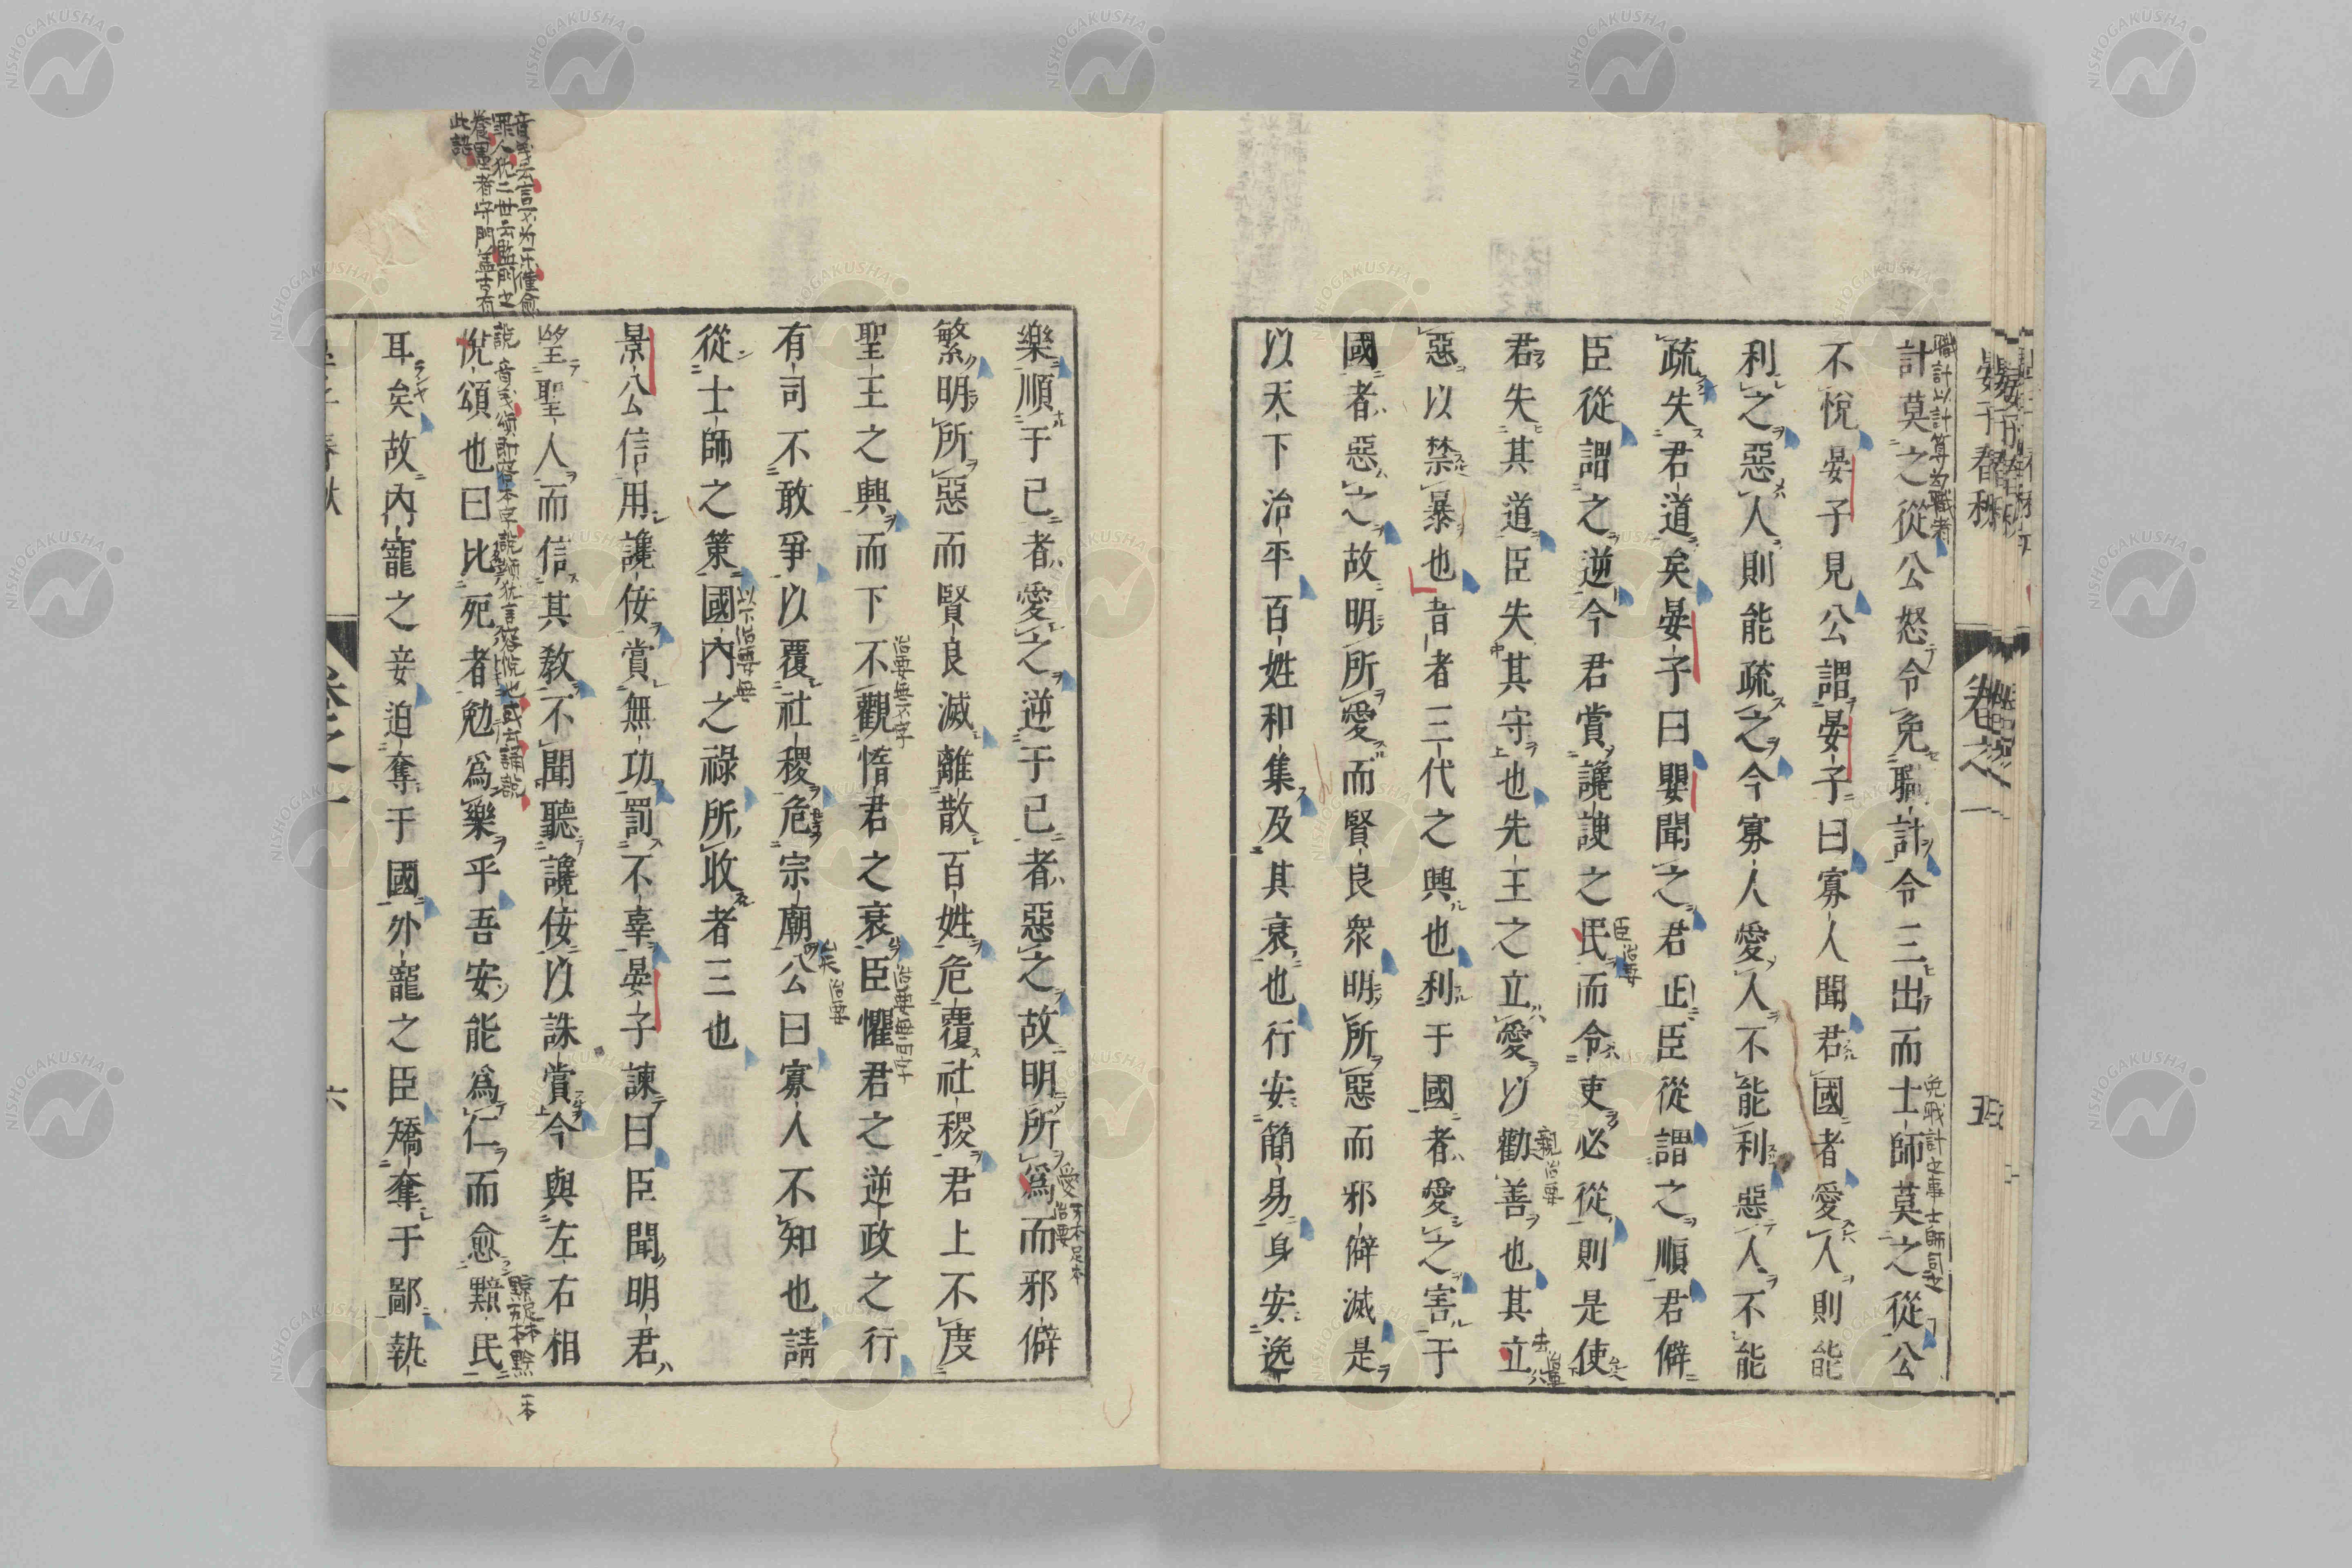 計莫之從公怒令免職計令三出而士師莫之從公
不悅晏子見公謂晏子曰寡人聞君國者愛人則能
利之惡人則能疏之今寡人愛人不能利惡人不能
疏失君道矣晏子曰嬰聞之君正臣從謂之順君僻
臣從謂之逆今君賞讒諛之民而令吏必從則是使
君失其道臣失其守也先王之立愛以勸善也其立
惡以禁暴也昔者三代之興也利于國者愛之害于
國者惡之故明所愛而賢良衆明所惡而邪僻滅是
以天下治平百姓和集及其衰也行安簡易身安逸
樂順于己者愛之逆于己者惡之故明所爲而邪僻
繁明所惡而賢良滅離散百姓危覆社稷君上不度
聖王之興而下不觀惰君之衰臣懼君之逆政之行
有司不敢爭以覆社稷危宗廟公曰寡人不知也請
從士師之策國內之祿所收者三也
景公信用讒佞賞無功罰不辜晏子諫曰臣聞明君
望聖人而信其教不聞聽讒佞以誅賞今與左右相
悅頌也曰比死者勉爲樂乎吾安能爲仁而愈黥民
耳矣故內寵之妾迫奪于國外寵之臣矯奪于鄙執
晏子春秋
卷之一
六
職計以計算爲職者
臣治要
親治要
去治要
愛
治要
治要無不字
治要無四字
矣治要
以下治要無
NISHOGAKUSHA